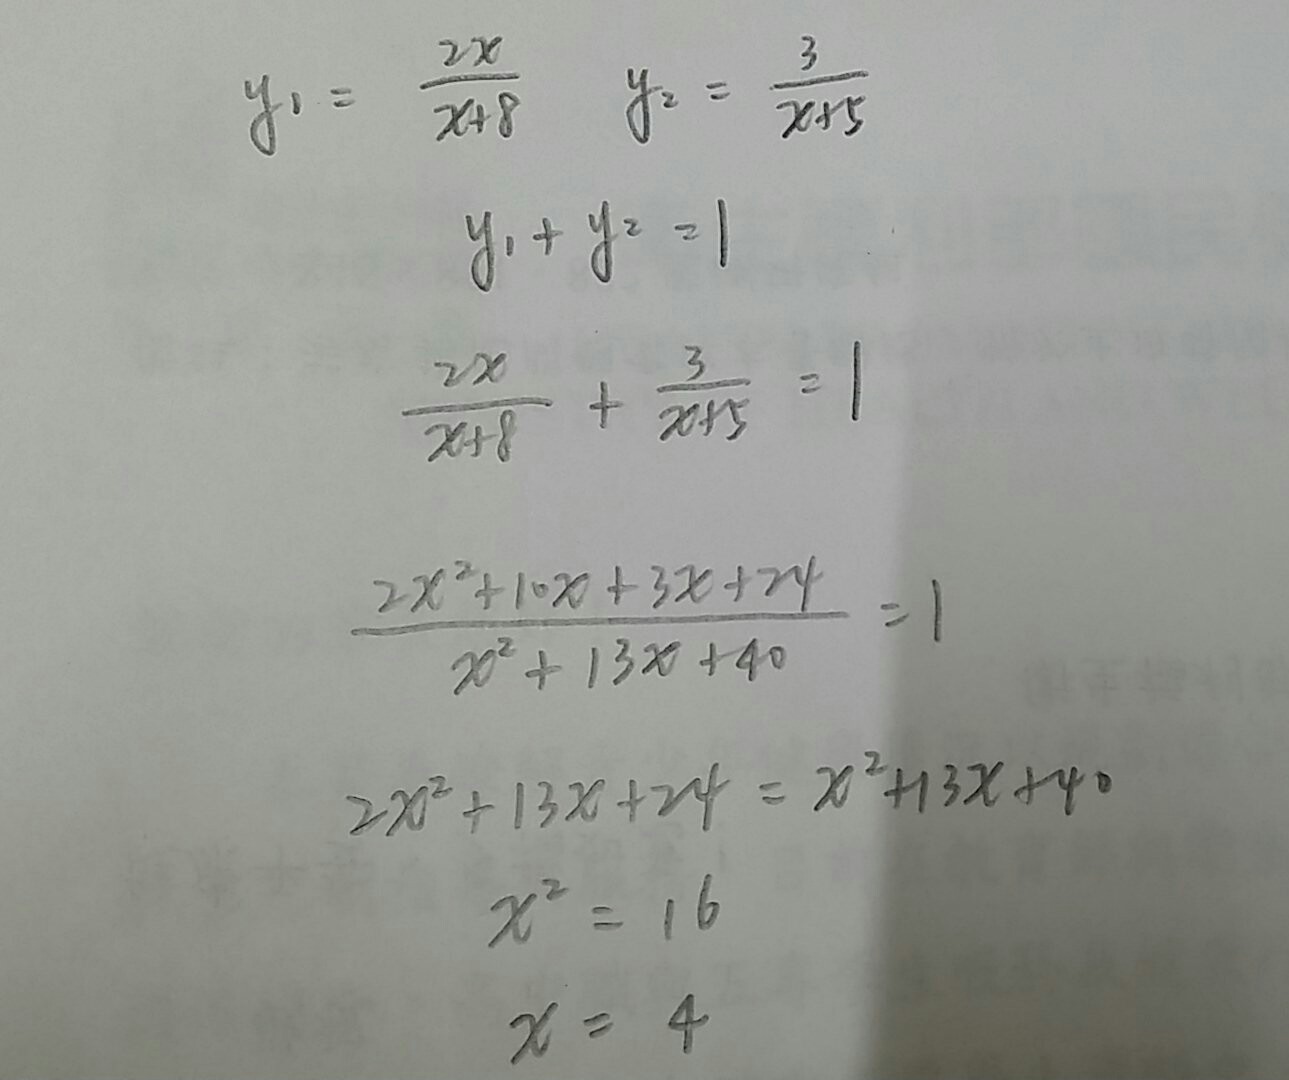 y₁ = 2x/(x+8) y₂ = 3/(x+5)
y₁ + y₂ = 1
2x/(x+8) + 3/(x+5) = 1
(2x²+10x+3x+24)/(x²+13x+40) = 1
2x²+13x+24 = x²+13x+40
x² = 16
x = 4